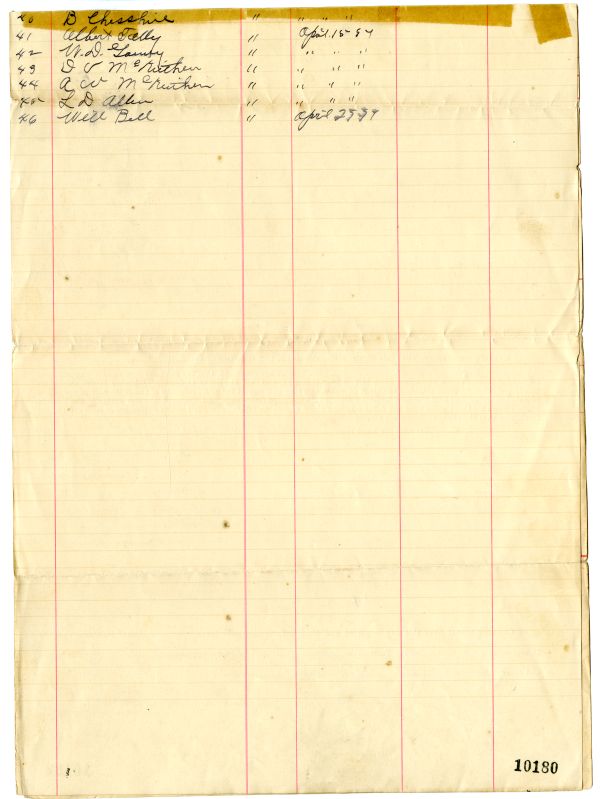 40 B Chesshire " " " "
41 Albert Talley " April 15 97
42 W. D. " " " "
43 D V McKuthen " " " "
44 A W McKuthen " " " "
45 L D Allen " " " "
46 Will Bell " April 29 97
10180